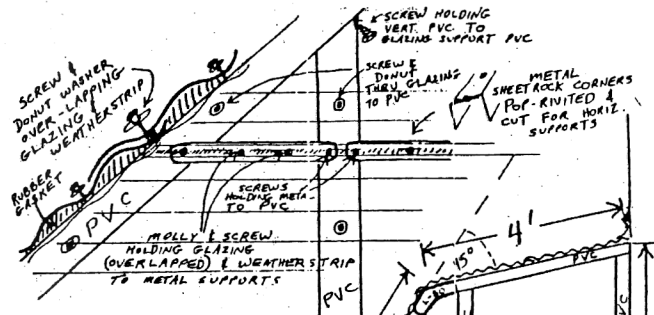 SCREW &
DONUT WASHER
OVER-LAPPING
GLAZING &
WEATHERSTRIP
RUBBER
GASKET
PVC
SCREW HOLDING
VERT. PVC TO
GLAZING SUPPORT PVC
SCREW &
DONUT
THRU GLAZING
TO PVC
METAL
SHEETROCK CORNERS
POP-RIVITED &
CUT FOR HORIZ.
SUPPORTS
SCREWS
HOLDING META
TO PVC
MOLLY & SCREW
HOLDING GLAZING
(OVERLAPPED) & WEATHERSTRIP
TO METAL SUPPORTS
PVC
4'
45°
PVC